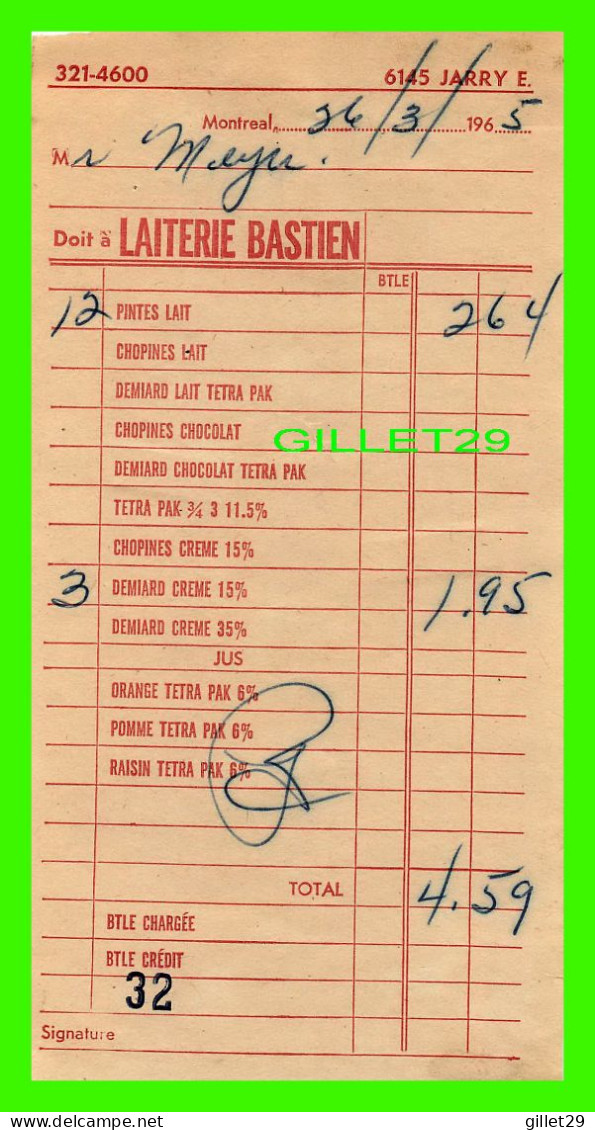 321-4600 6145 JARRY E.
Montreal, 26/3/ 1965
Mr Meyer.
Doit à LAITERIE BASTIEN
BTLE
12 PINTES LAIT 264
CHOPINES LAIT
DEMIARD LAIT TETRA PAK
CHOPINES CHOCOLAT
GILLET29
DEMIARD CHOCOLAT TETRA PAK
TETRA PAK ¾ 3 11.5%
CHOPINES CREME 15%
3 DEMIARD CREME 15% 1.95
DEMIARD CREME 35%
JUS
ORANGE TETRA PAK 6%
POMME TETRA PAK 6%
RAISIN TETRA PAK 6%
TOTAL 4.59
BTLE CHARGÉE
BTLE CRÉDIT
32
Signature
gillet29